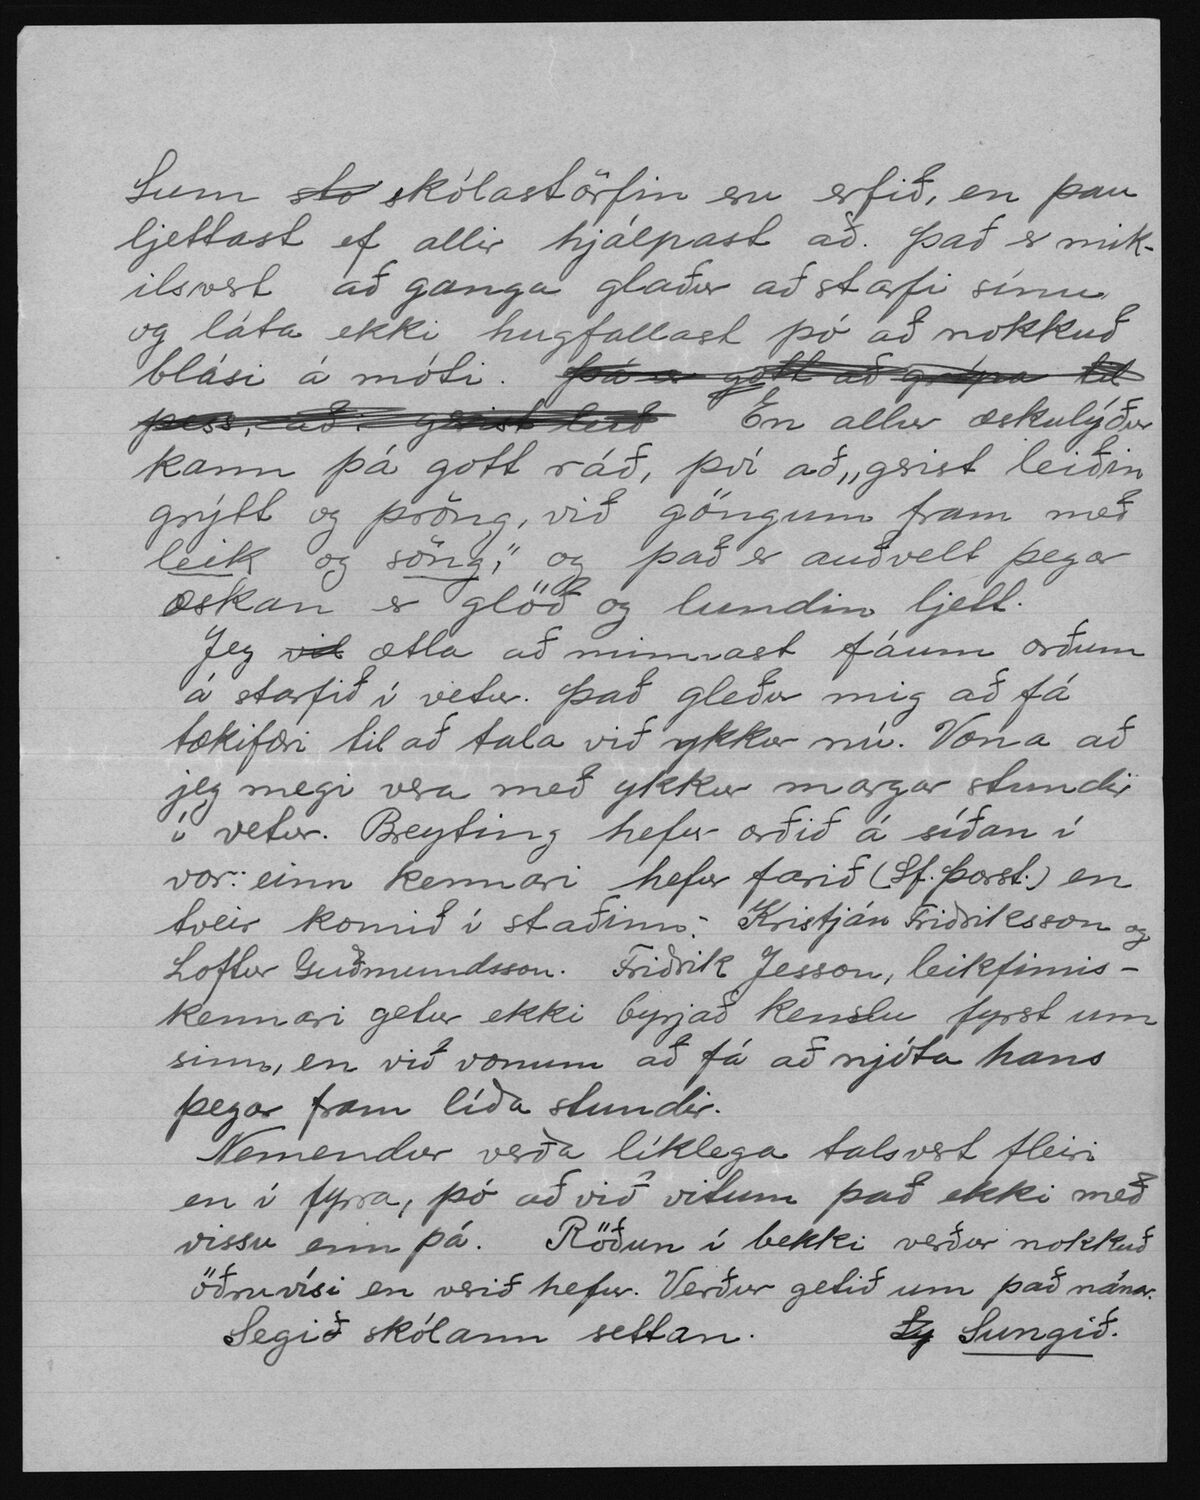 Sum sto skólastörfin eru erfið, en þau
ljettast ef allir hjálpast að. Það er mik-
ilsvert að ganga glaður að starfi sínu
og láta ekki hugfallast þó að nokkuð
blási á móti. Þá er gott að grípa til
þess, að: gerist leið En allur æskulýður
kann þá gott ráð, því að „gerist leiðin
grýtt og þröng, við göngum fram með
leik og söng," og það er auðvelt þegar
æskan er glöð og lundin ljett.
Jeg vil ætla að minnast fáum orðum
á starfið í vetur. Það gleður mig að fá
tækifæri til að tala við ykkur nú. Vona að
jeg megi vera með ykkur margar stundir
í vetur. Breyting hefur orðið á síðan í
vor: einn kennari hefur farið (Sf. Þorst.) en
tveir komið í staðinn: Kristján Friðriksson og
Loftur Guðmundsson. Friðrik Jesson, leikfimis-
kennari getur ekki byrjað kenslu fyrst um
sinn, en við vonum að fá að njóta hans
þegar fram líða stundir.
Nemendur verða líklega talsvert fleiri
en í fyrra, þó að við vitum það ekki með
vissu enn þá. Röðun í bekki verður nokkuð
öðruvísi en verið hefur. Verður getið um það nánar.
Segið skólann settan. Sungið.